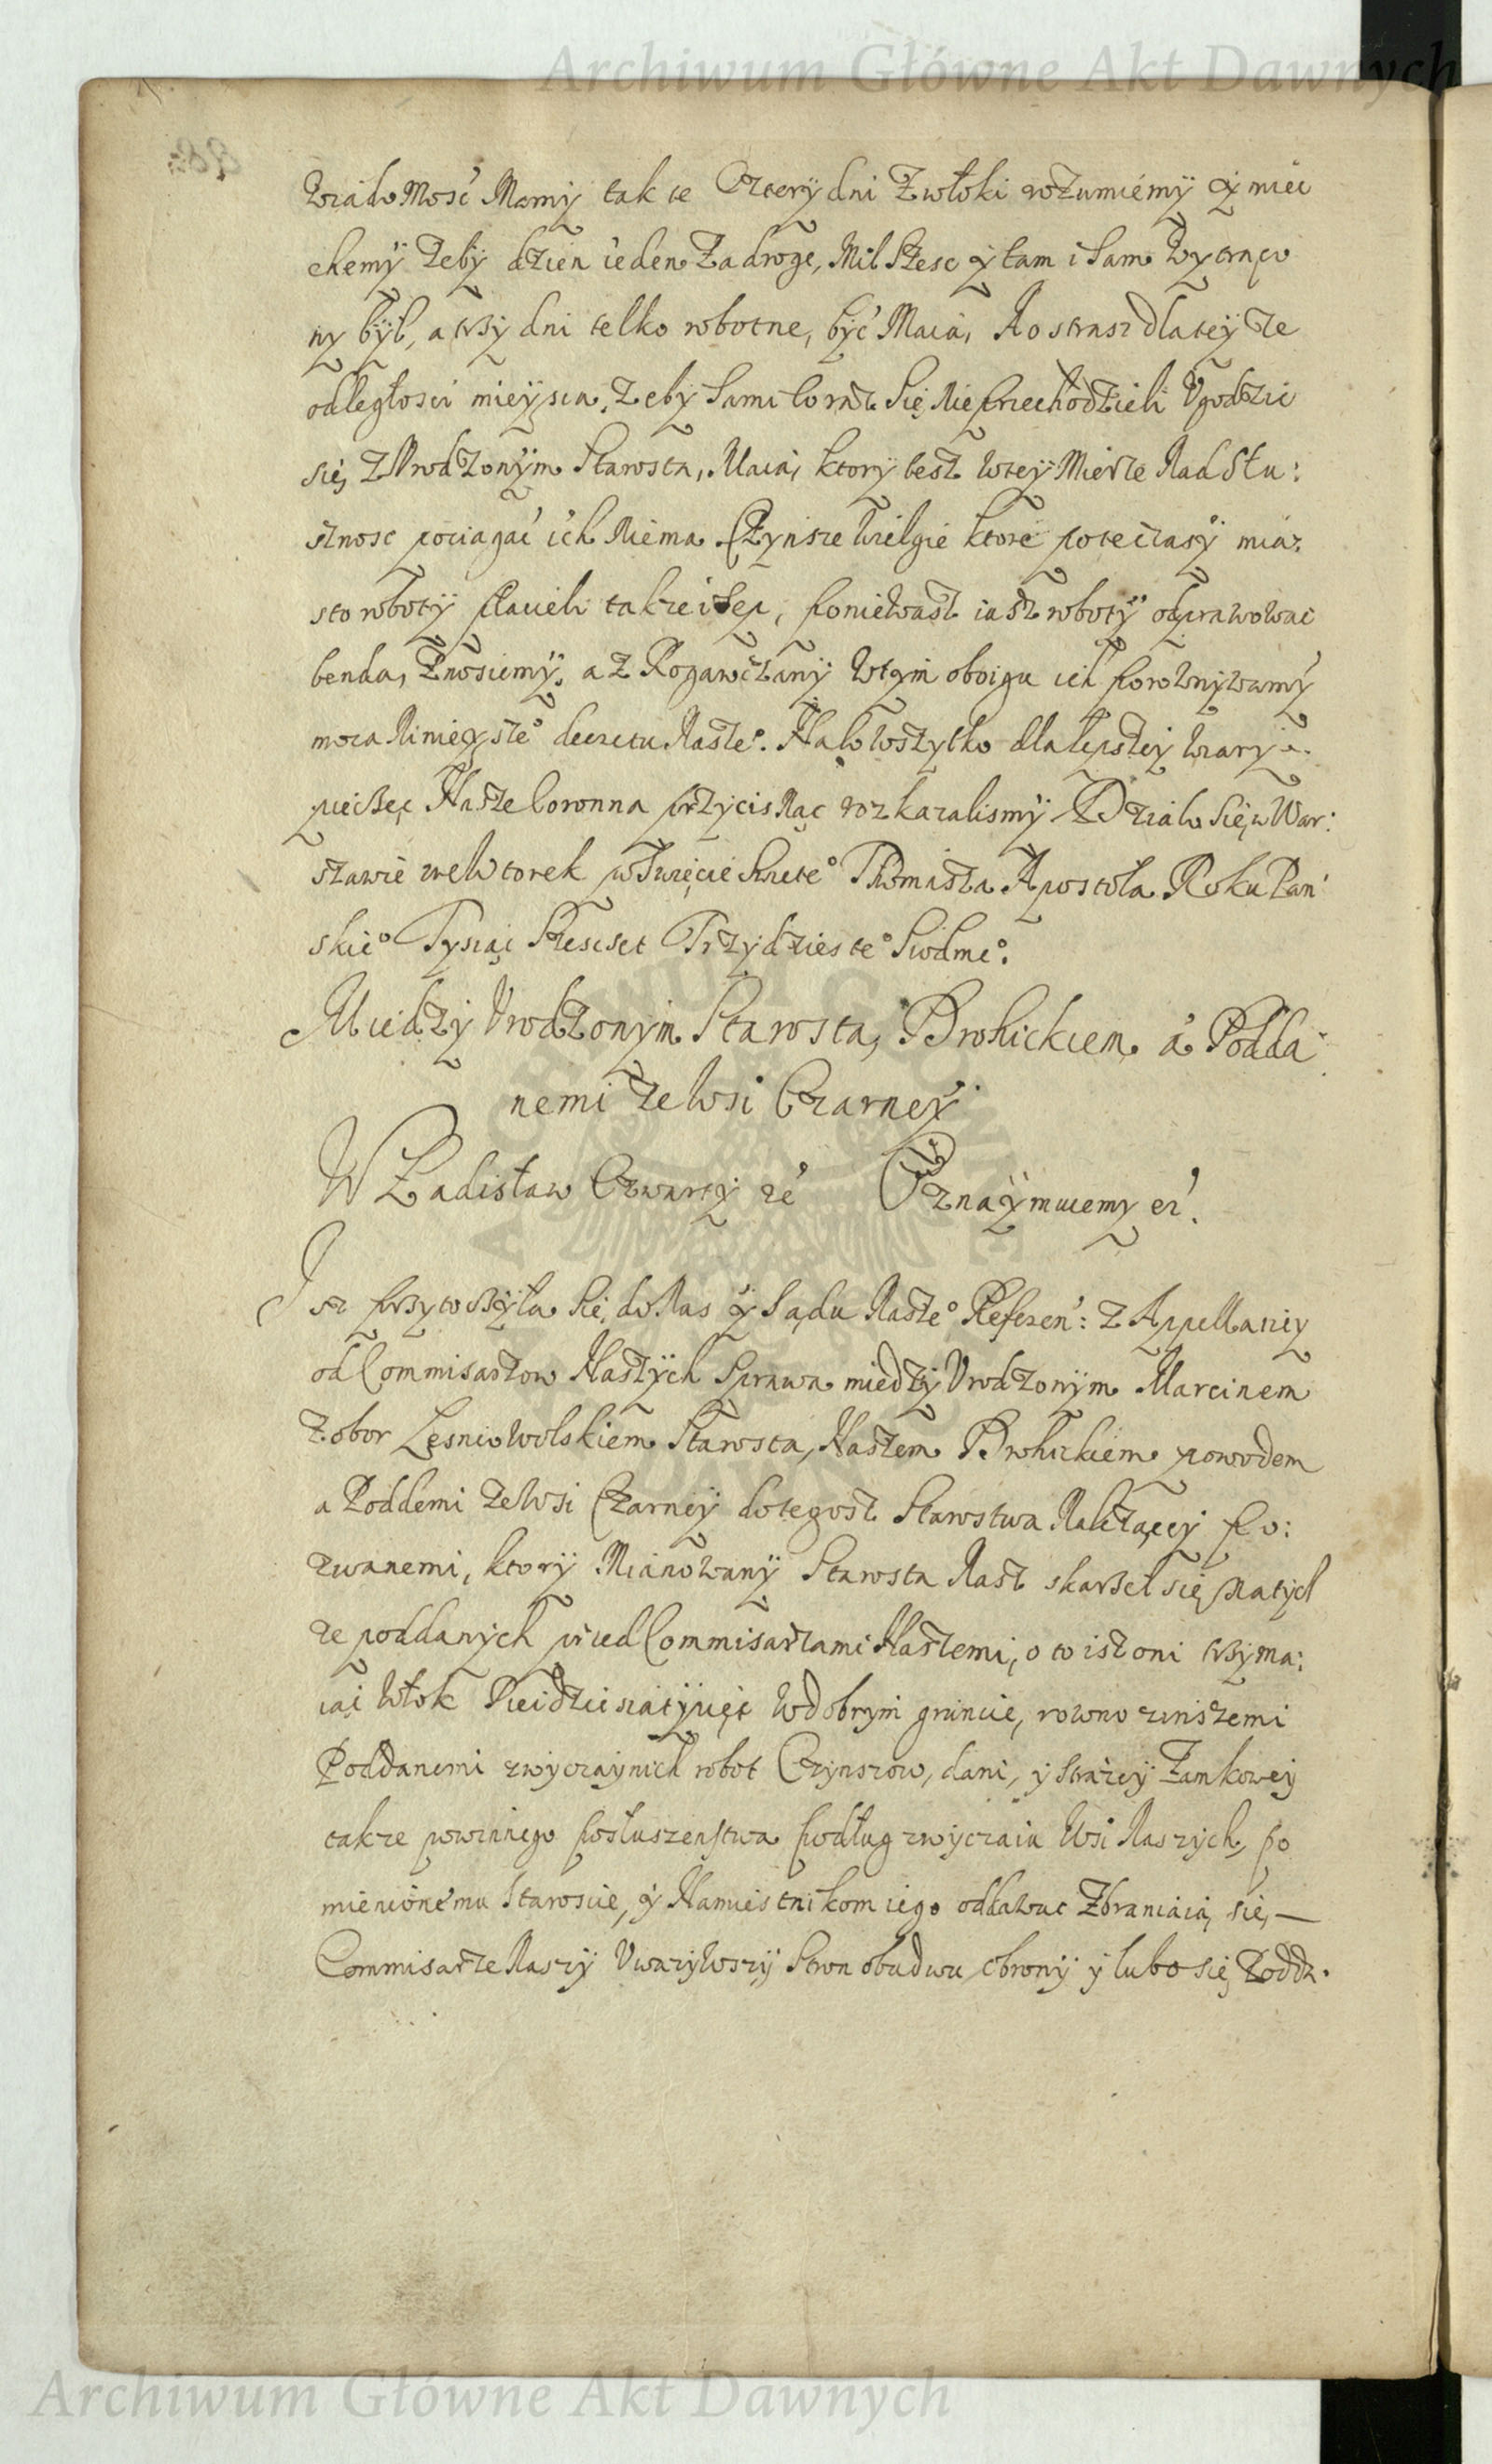 Archiwum Główne Akt Dawnych
wiadomość Mamy tak te Cztery dni z włoki rozumiemy y miec
chemy zeby dzien ieden za droge, Mil szesc y tam i sam wytrąco
ny był, a trzy dni telko robotne, być Maią, A o strasz dla teyze
odległosci mieysca, zeby sami coraz się nie przechodzieli Ugodzic
się z Urodzonym Starostą, Maią, ktory tesz w tey Mierze Nad słu:
sznosc pociągać ich Niema. Czynsze wielgie ktore po te czasy mia:
sto roboty płacieli takze i sep, poniewasz iusz roboty odprawowac
benda, znosiemy, a z Rogawczany w tym oboigu ich porownywamy
moca Ninieyszeº decretu Naszeº. Na to wszytko dla lepszey wiary
pieczęc Nasze Coronna przycisnąc rozkazalismy Działo się w War:
szawie we Wtorek w Swięcie Swieteº Thomasza Apostoła Roku Pan
skieº Tysiąc Szescset Trzydziesteº Siodmeº.
Miedzy Urodzonym Starostą, Brohickiem a Podda
nemi ze Wsi Czarney
Władisław Czwarty zc Oznaymuiemy ec.
Isz przytoczyła się do Nas y Sądu Naszeº Referen: z Appellaciey
od Commisarzow Naszych Sprawa miedzy Urodzonym Marcinem
z Obor Lesniowolskiem Starostą, Naszem Brohickiem powodem
a Poddemi ze Wsi Czarney do tegosz Starostwa Nalezącey po:
zwanemi, ktory Mianowany Starosta Nasz skarzeł się na tych
ze poddanych przed Commisarzami Naszemi, o to isz oni trzyma:
iąc Włok Pieidziesiat y pięc w dobrym gruncie, rowno z inszemi
Poddanemi zwyczaynich robot Czynszow, dani, y strazey Zamkowey
takze powinnego posłuszenstwa podług zwyczaiu Wsi Naszych, po
mienionemu Staroscie, y Namiestnikom iego oddawac zbraniaią się, —
Commisarze Naszy Uwazywszy Stron obudwu obrony y lubo się Podda.
Archiwum Główne Akt Dawnych